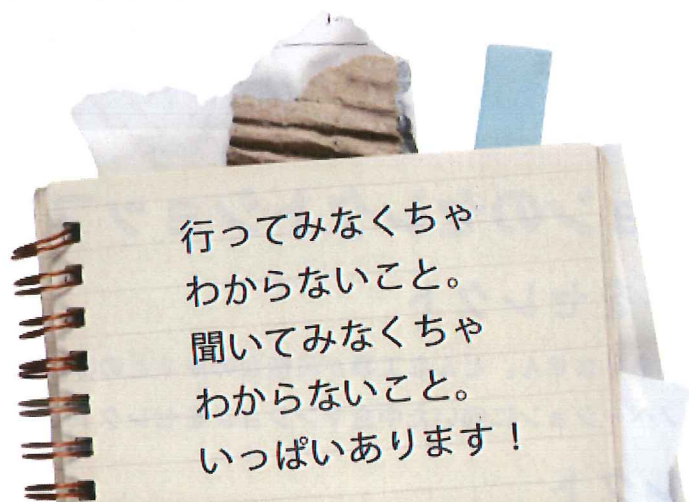 行ってみなくちゃ
わからないこと。
聞いてみなくちゃ
わからないこと。
いっぱいあります！